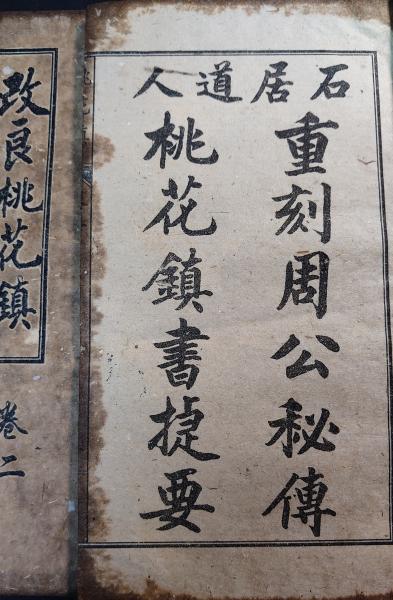 石居道人
重刻周公秘傳
桃花鎮書捷要
改良桃花鎮
卷二